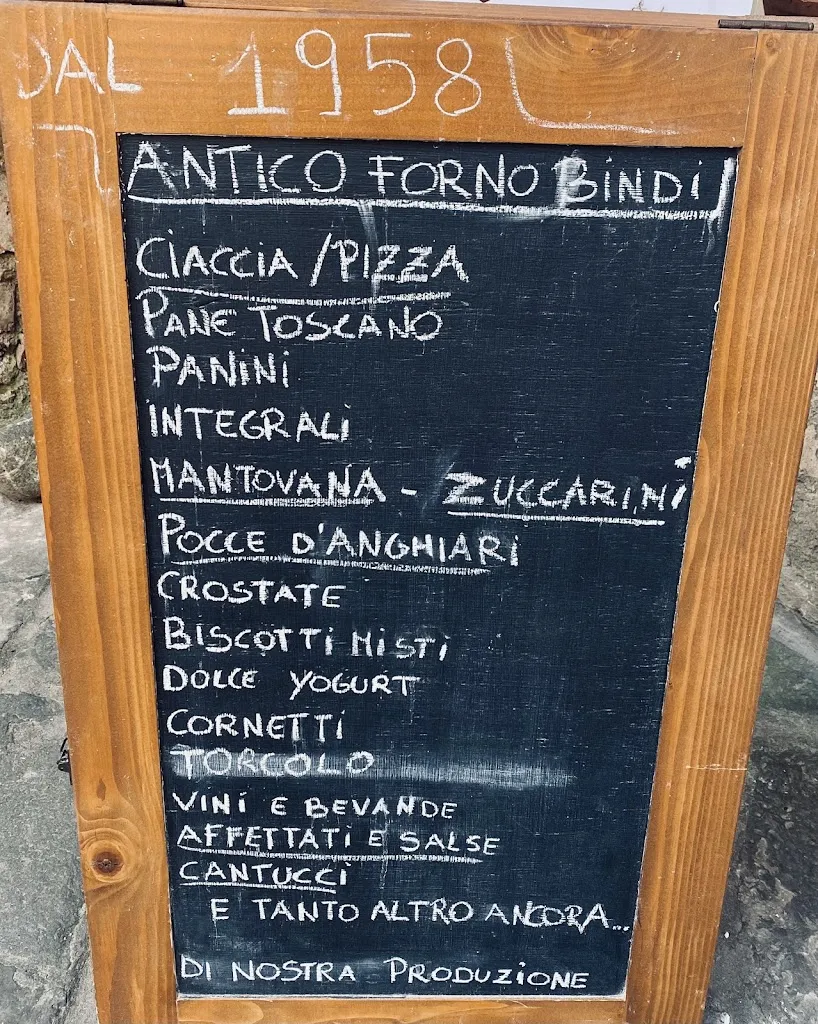 DAL 1958
ANTICO FORNO BINDI
CIACCIA/PIZZA
PANE TOSCANO
PANINI
INTEGRALI
MANTOVANA - ZUCCARINI
POCCE D'ANGHIARI
CROSTATE
BISCOTTI MISTI
DOLCE YOGURT
CORNETTI
TORCOLO
VINI E BEVANDE
AFFETTATI E SALSE
CANTUCCI
E TANTO ALTRO ANCORA...
DI NOSTRA PRODUZIONE